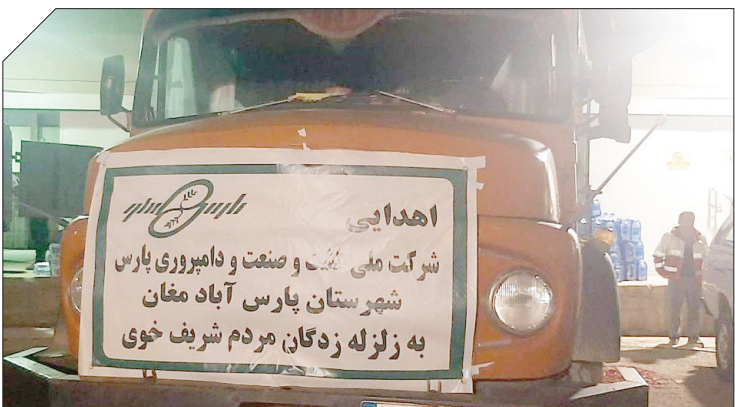 اهدایی
شرکت ملی کشت و صنعت و دامپروری پارس
شهرستان پارس آباد مغان
به زلزله زدگان مردم شریف خوی